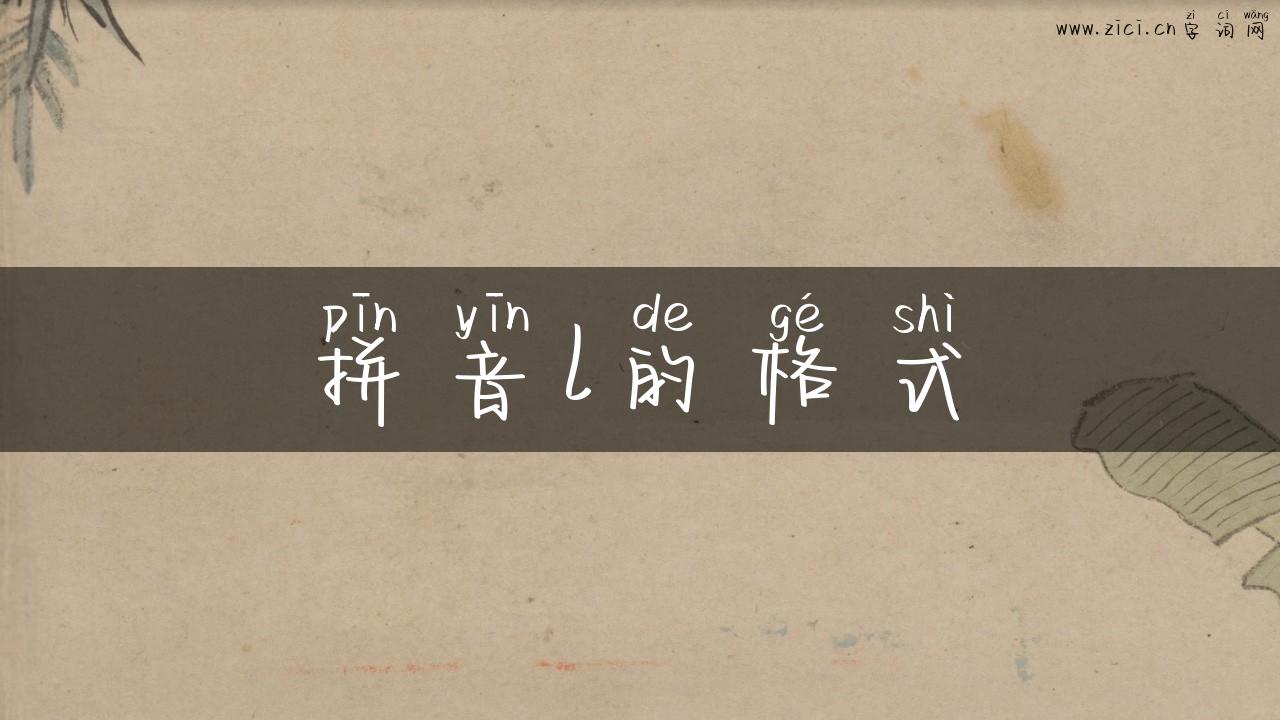 zì cí wǎng
www.zici.cn 字词网
pīn yīn de gé shì
拼音l的格式